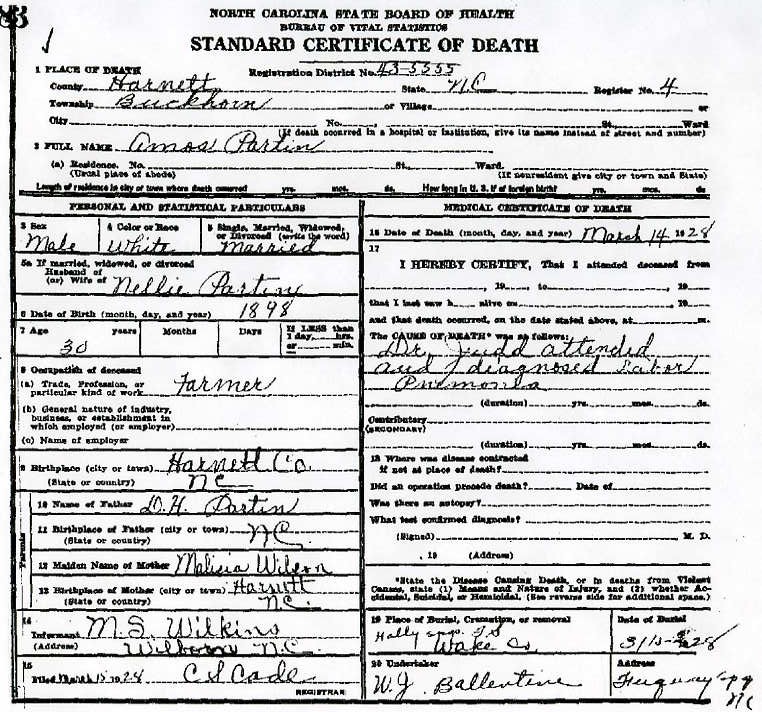 NORTH CAROLINA STATE BOARD OF HEALTH
BUREAU OF VITAL STATISTICS
STANDARD CERTIFICATE OF DEATH
1 PLACE OF DEATH
Registration District No. 43-5555
County Harnett State NC Register No. 4
Township Buckhorn or Village or
City No. St. Ward
(If death occurred in a hospital or institution, give its name instead of street and number)
2 FULL NAME Amos Partin
(a) Residence. No. St. Ward.
(Usual place of abode) (If nonresident give city or town and State)
Length of residence in city or town where death occurred yrs. mos. ds. How long in U. S. if of foreign birth? yrs. mos. ds.
PERSONAL AND STATISTICAL PARTICULARS
3 Sex 4 Color or Race 5 Single, Married, Widowed, or Divorced (write the word)
Male White Married
5a If married, widowed, or divorced
Husband of
(or) Wife of Nellie Partin
6 Date of Birth (month, day, and year) 1898
7 Age years Months Days If LESS than 1 day, hrs. or min.
30
8 Occupation of deceased
(a) Trade, Profession, or particular kind of work Farmer
(b) General nature of industry,
business, or establishment in
which employed (or employer)
(c) Name of employer
9 Birthplace (city or town) Harnett Co.
(State or country) NC
Parents
10 Name of Father D.H. Partin
11 Birthplace of Father (city or town)
(State or country) NC
12 Maiden Name of Mother Wilson
13 Birthplace of Mother (city or town) Harnett
(State or country) NC.
14
Informant M.S. Wilkins
(Address) N.C.
15
Filed March 15 1928 C S Cade
REGISTRAR
MEDICAL CERTIFICATE OF DEATH
16 Date of Death (month, day, and year) March 14 1928
17
I HEREBY CERTIFY, That I attended deceased from
, 19 , to , 19
that I last saw h alive on , 19
and that death occurred, on the date stated above, at m.
The CAUSE OF DEATH* was as follows:
Dr. Judd attended
and diagnosed Labor
Pnimonia
(duration) yrs. mos. ds.
Contributory
(SECONDARY)
(duration) yrs. mos. ds.
18 Where was disease contracted
if not at place of death?
Did an operation precede death? Date of
Was there an autopsy?
What test confirmed diagnosis?
(Signed) M. D.
, 19 (Address)
*State the Disease Causing Death, or in deaths from Violent
Causes, state (1) Means and Nature of Injury, and (2) whether Ac-
cidental, Suicidal, or Homicidal. (See reverse side for additional space.)
19 Place of Burial, Cremation, or removal Date of Burial
Wake Co 3/15 28
20 Undertaker Address
W.J. Ballentine NC